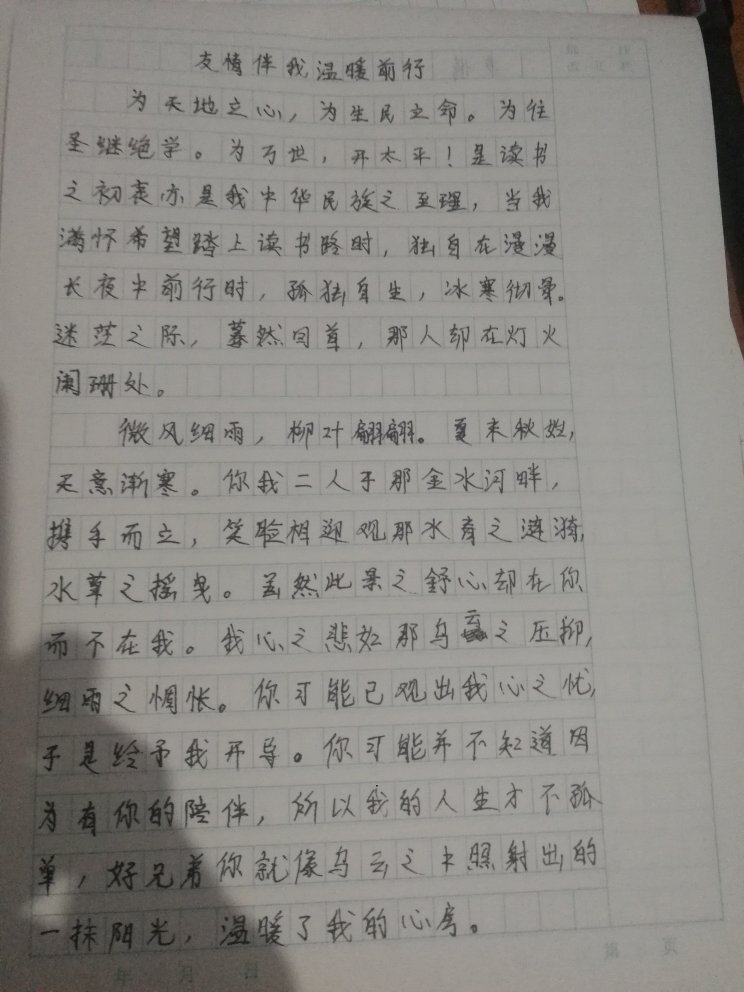 友情伴我温暖前行
为天地之心，为生民立命。为往
圣继绝学。为万世，开太平！是读书
之初衷亦是我中华民族之至理，当我
满怀希望踏上读书路时，独自在漫漫
长夜中前行时，孤独自生，冰寒彻骨。
迷茫之际，蓦然回首，那人却在灯火
阑珊处。
微风细雨，柳叶翩翩。夏末秋始，
天意渐寒。你我二人于那金水河畔，
携手而立，笑脸相迎观那水育之涟漪，
水草之摇曳。虽然此景之舒心却在你
而不在我。我心之悲如那乌云之压抑，
细雨之惆怅。你可能已观出我心之忧，
于是给予我开导。你可能并不知道因
为有你的陪伴，所以我的人生才不孤
单，好兄弟你就像乌云之中照射出的
一抹阳光，温暖了我的心房。
年 月 日
第 页